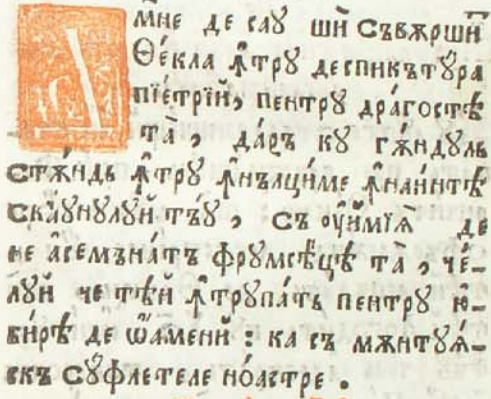 Амне де саꙋ ши́ съвѫрши́
Ѳе́кла ꙟ҆трꙋ деспикътꙋ́ра
пїе́трїй, пентрꙋ дра́гостѣ
та̀, да́ръ кꙋ гѫ́ндꙋль
стѫ́ндь ꙟ҆трꙋ ꙟ҆нълциме ꙟ҆наи́нтѣ
скаꙋнꙋлꙋй тъꙋ, съ ᲂу҆ймїѧ̀ де
не а҆семъна́тъ фрꙋмсѣ́цѣ та̀, че́-
лꙋй че тѣй ꙟ҆трꙋпа́ть пентрꙋ ю-
би́рѣ де ѡ҆а́мени : ка съ мѫнтꙋѧ́-
скъ сꙋ́флетеле но́астре .